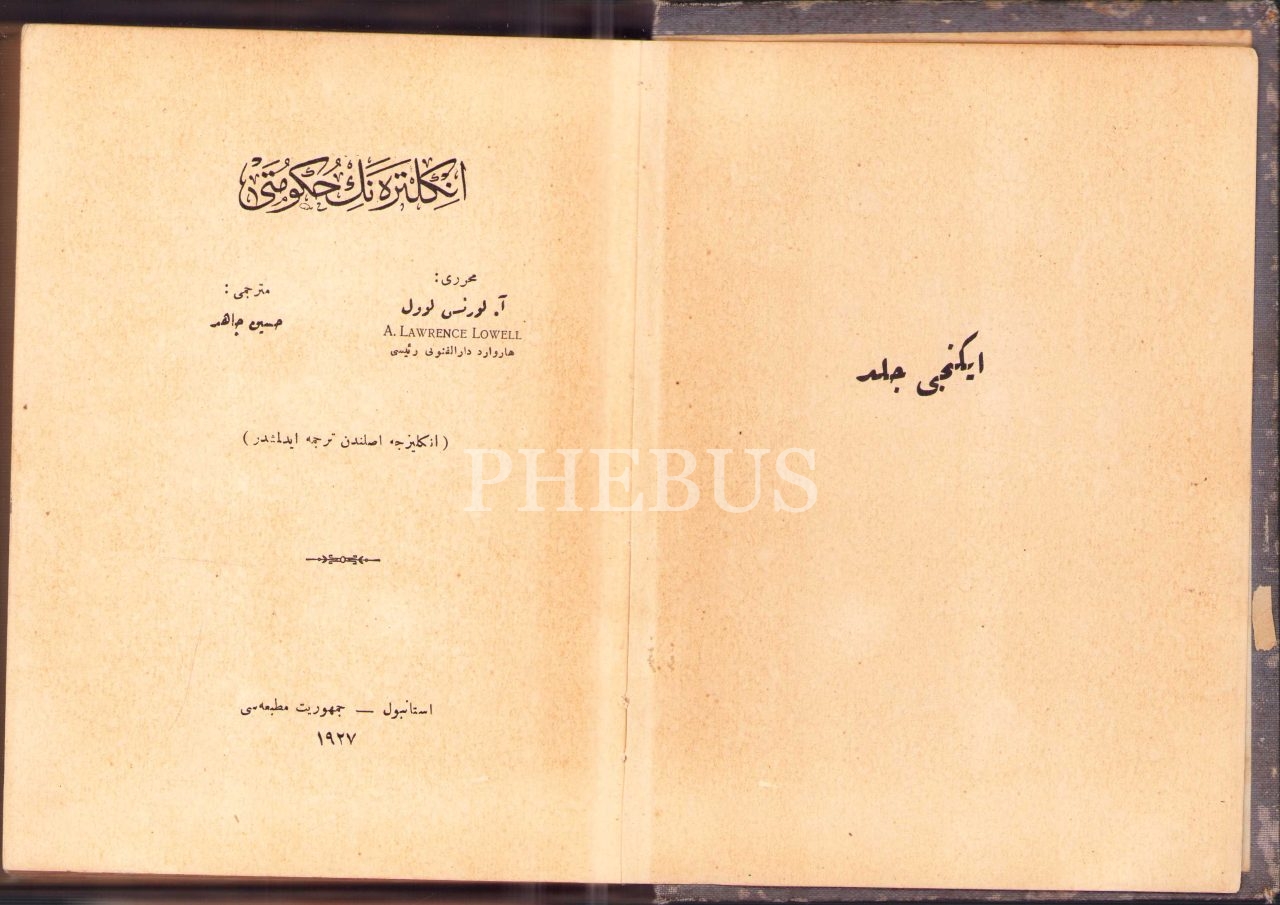 ايكنجى جلد
انكلتره نك حكومتى
محررى :
آ. لورنس لوول
A. LAWRENCE LOWELL
هاروارد دارالفنونى رئيسى
مترجمى :
حسين جاهد
( انكليزجه اصلندن ترجمه ايدلمشدر )
استانبول — جمهوريت مطبعه‌سى
١٩٢٧
PHEBUS